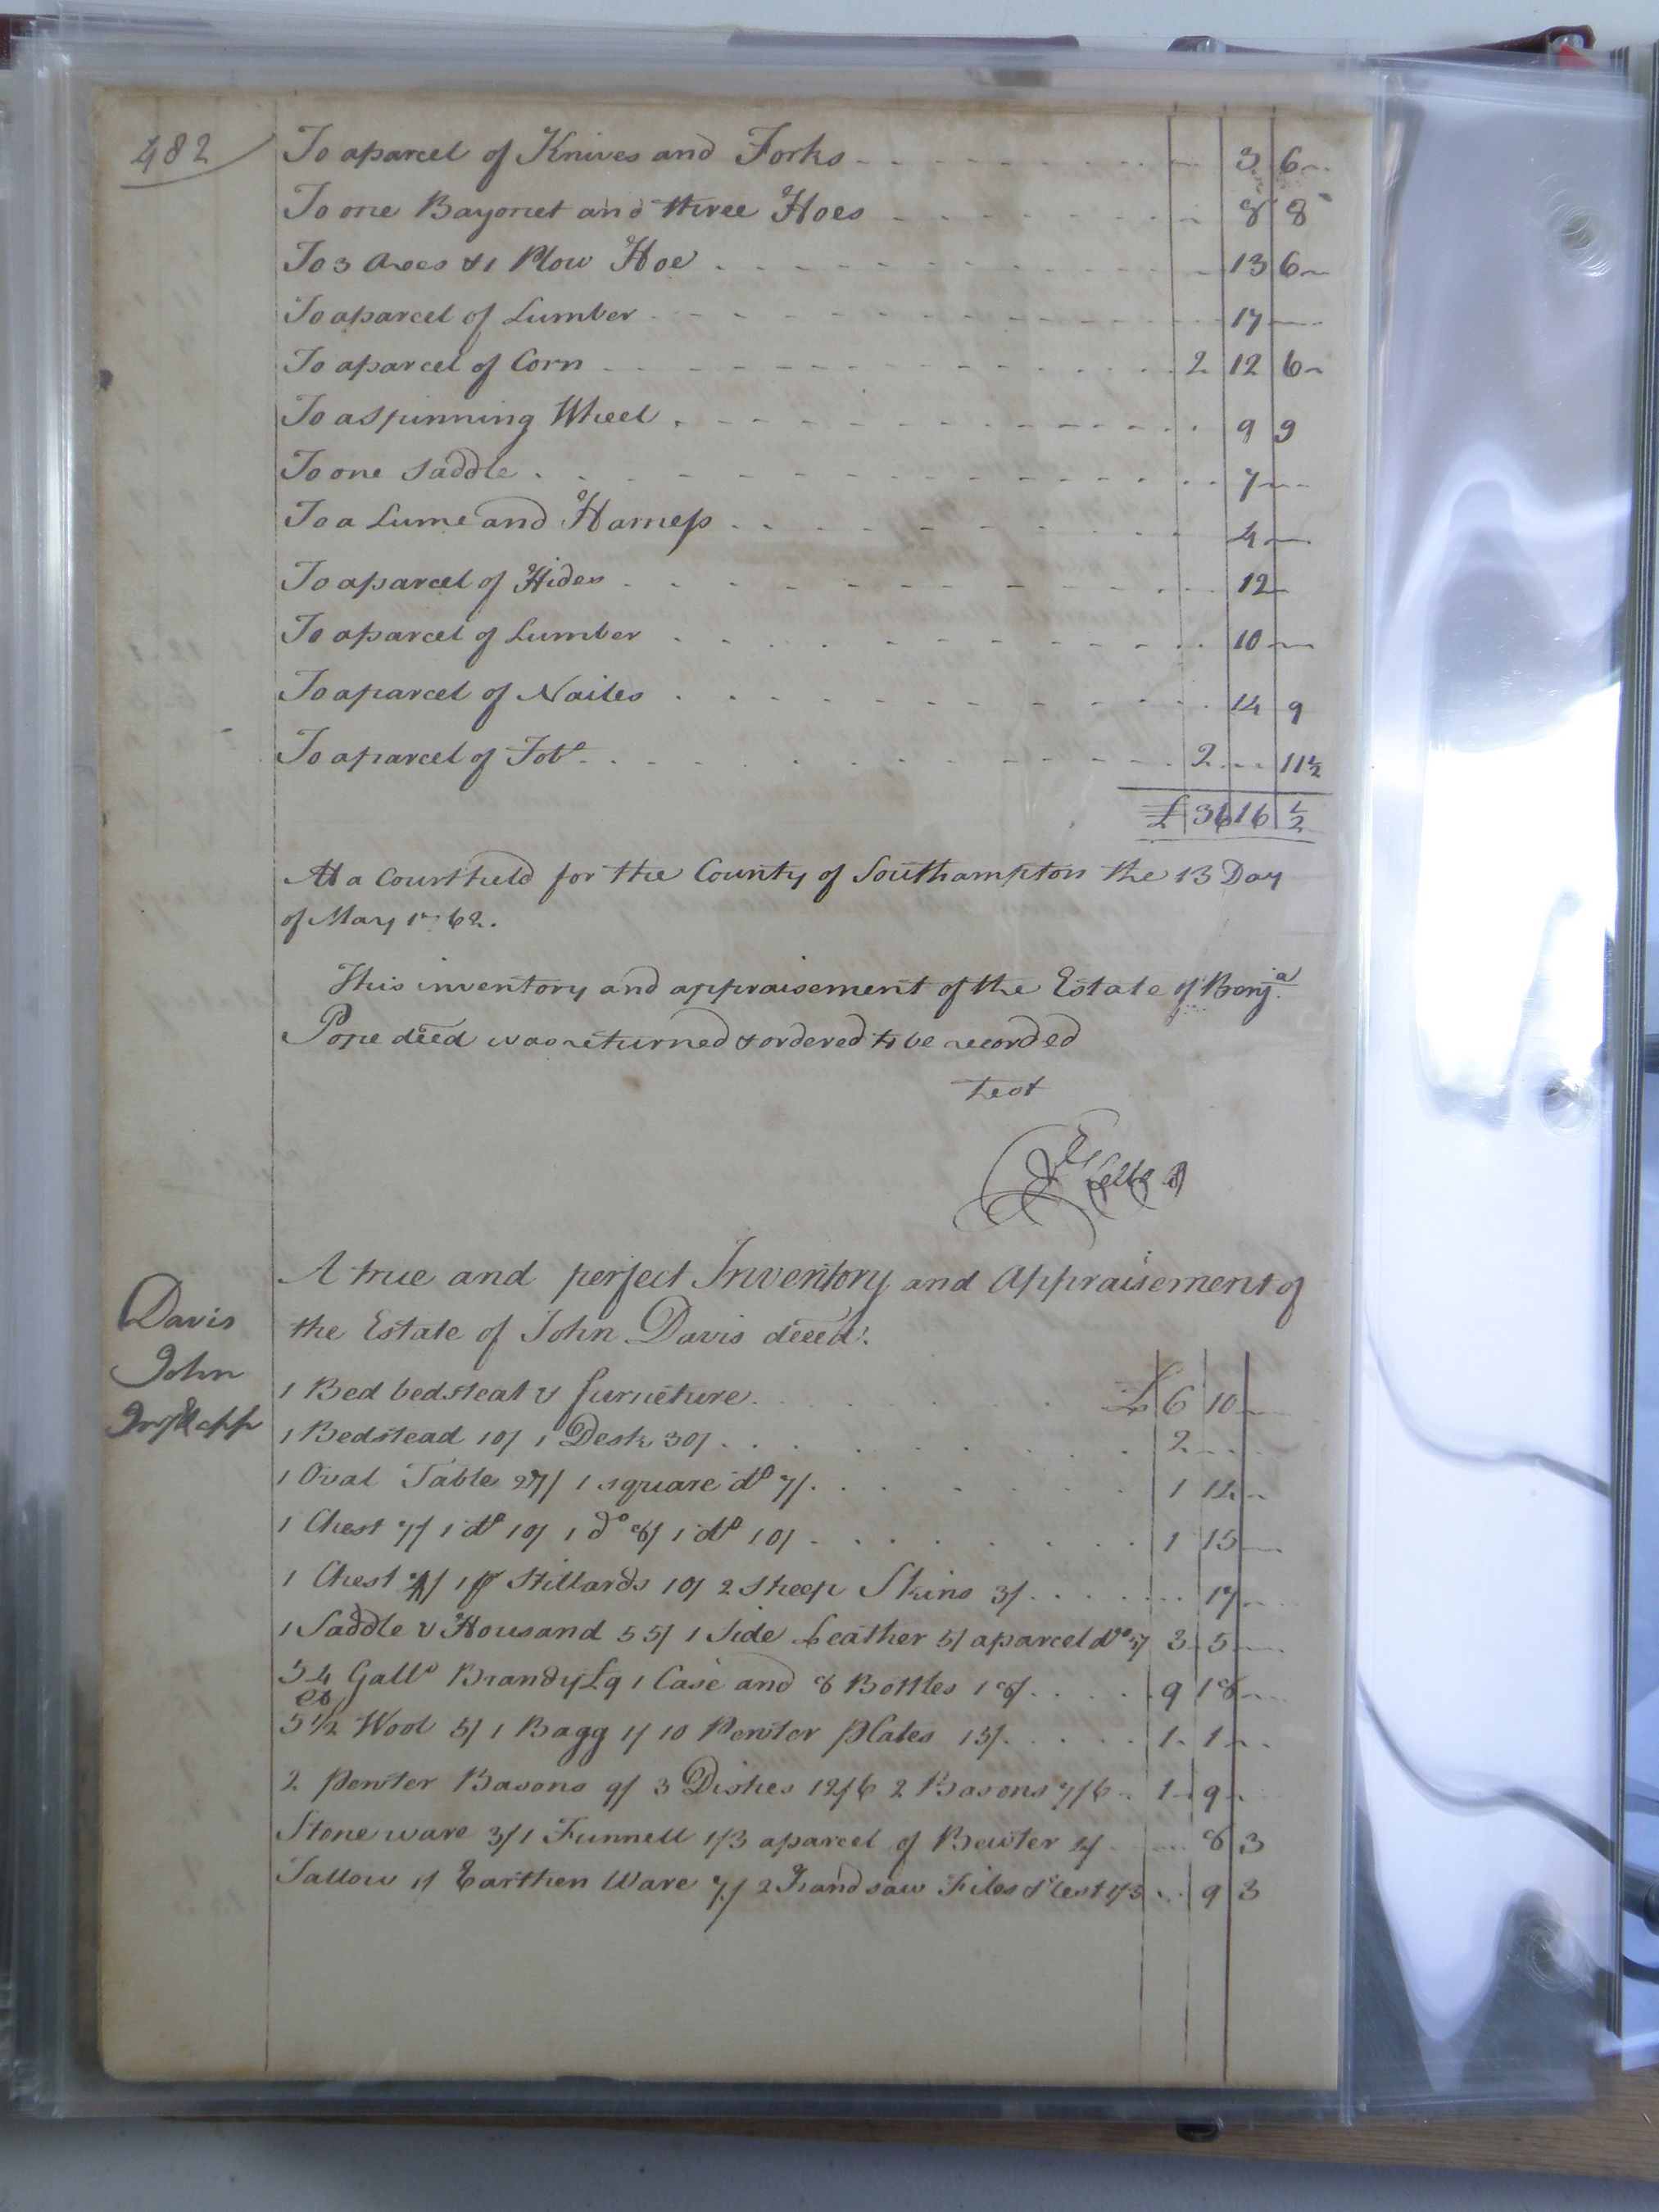 482
To aparcel of Knives and Forks - - - 3 6
To one Bayonet and three Hoes - - - 8 8
To 3 Axes & 1 Plow Hoe - - - 13 6
To aparcel of Lumber - - - 17
To aparcel of Corn - - - 2 12 6
To a Spinning Wheel - - - 9 9
To one Saddle - - - 7
To a Lume and Harness - - - 4
To aparcel of Hides - - - 12
To aparcel of Lumber - - - 10
To aparcel of Nailes - - - 14 9
To aparcel of Tobo - - - 2 11½
£ 36 16 ½
At a Court held for the County of Southampton the 13 Day
of May 1762.
This inventory and appraisement of the Estate of Benja
Pope deced was returned & ordered to be recorded
test
A true and perfect Inventory and Appraisement of
the Estate of John Davis deced.
Davis
John
1 Bed bedsteat & furneture £ 6 10
1 Bedstead 10/ 1 Desk 30/ 2
1 Oval Table 27/ 1 square do 7/ 1 14
1 Chest 7/ 1 do 10/ 1 do 8/ 1 do 10/ 1 15
1 Chest 4/ 1 pr Stillards 10/ 2 Sheep Skins 3/ 17
1 Saddle & Housand 55/ 1 Side Leather 5/ aparcel do 5/ 3 5
54 Galls Brandy £9 1 Case and 8 Bottles 18/ 9 18
5½ Wool 5/ 1 Bagg 1/ 10 Pewter Plates 15/ 1 1
2 Pewter Basons 9/ 3 Dishes 12/6 2 Basons 7/6 1 9
Stone ware 3/ 1 Funnell 1/3 aparcel of Bewter 4/ 8 3
Tallow 1/ Earthen Ware 7/ 2 Handsaw Files & Rest 1/3 9 3